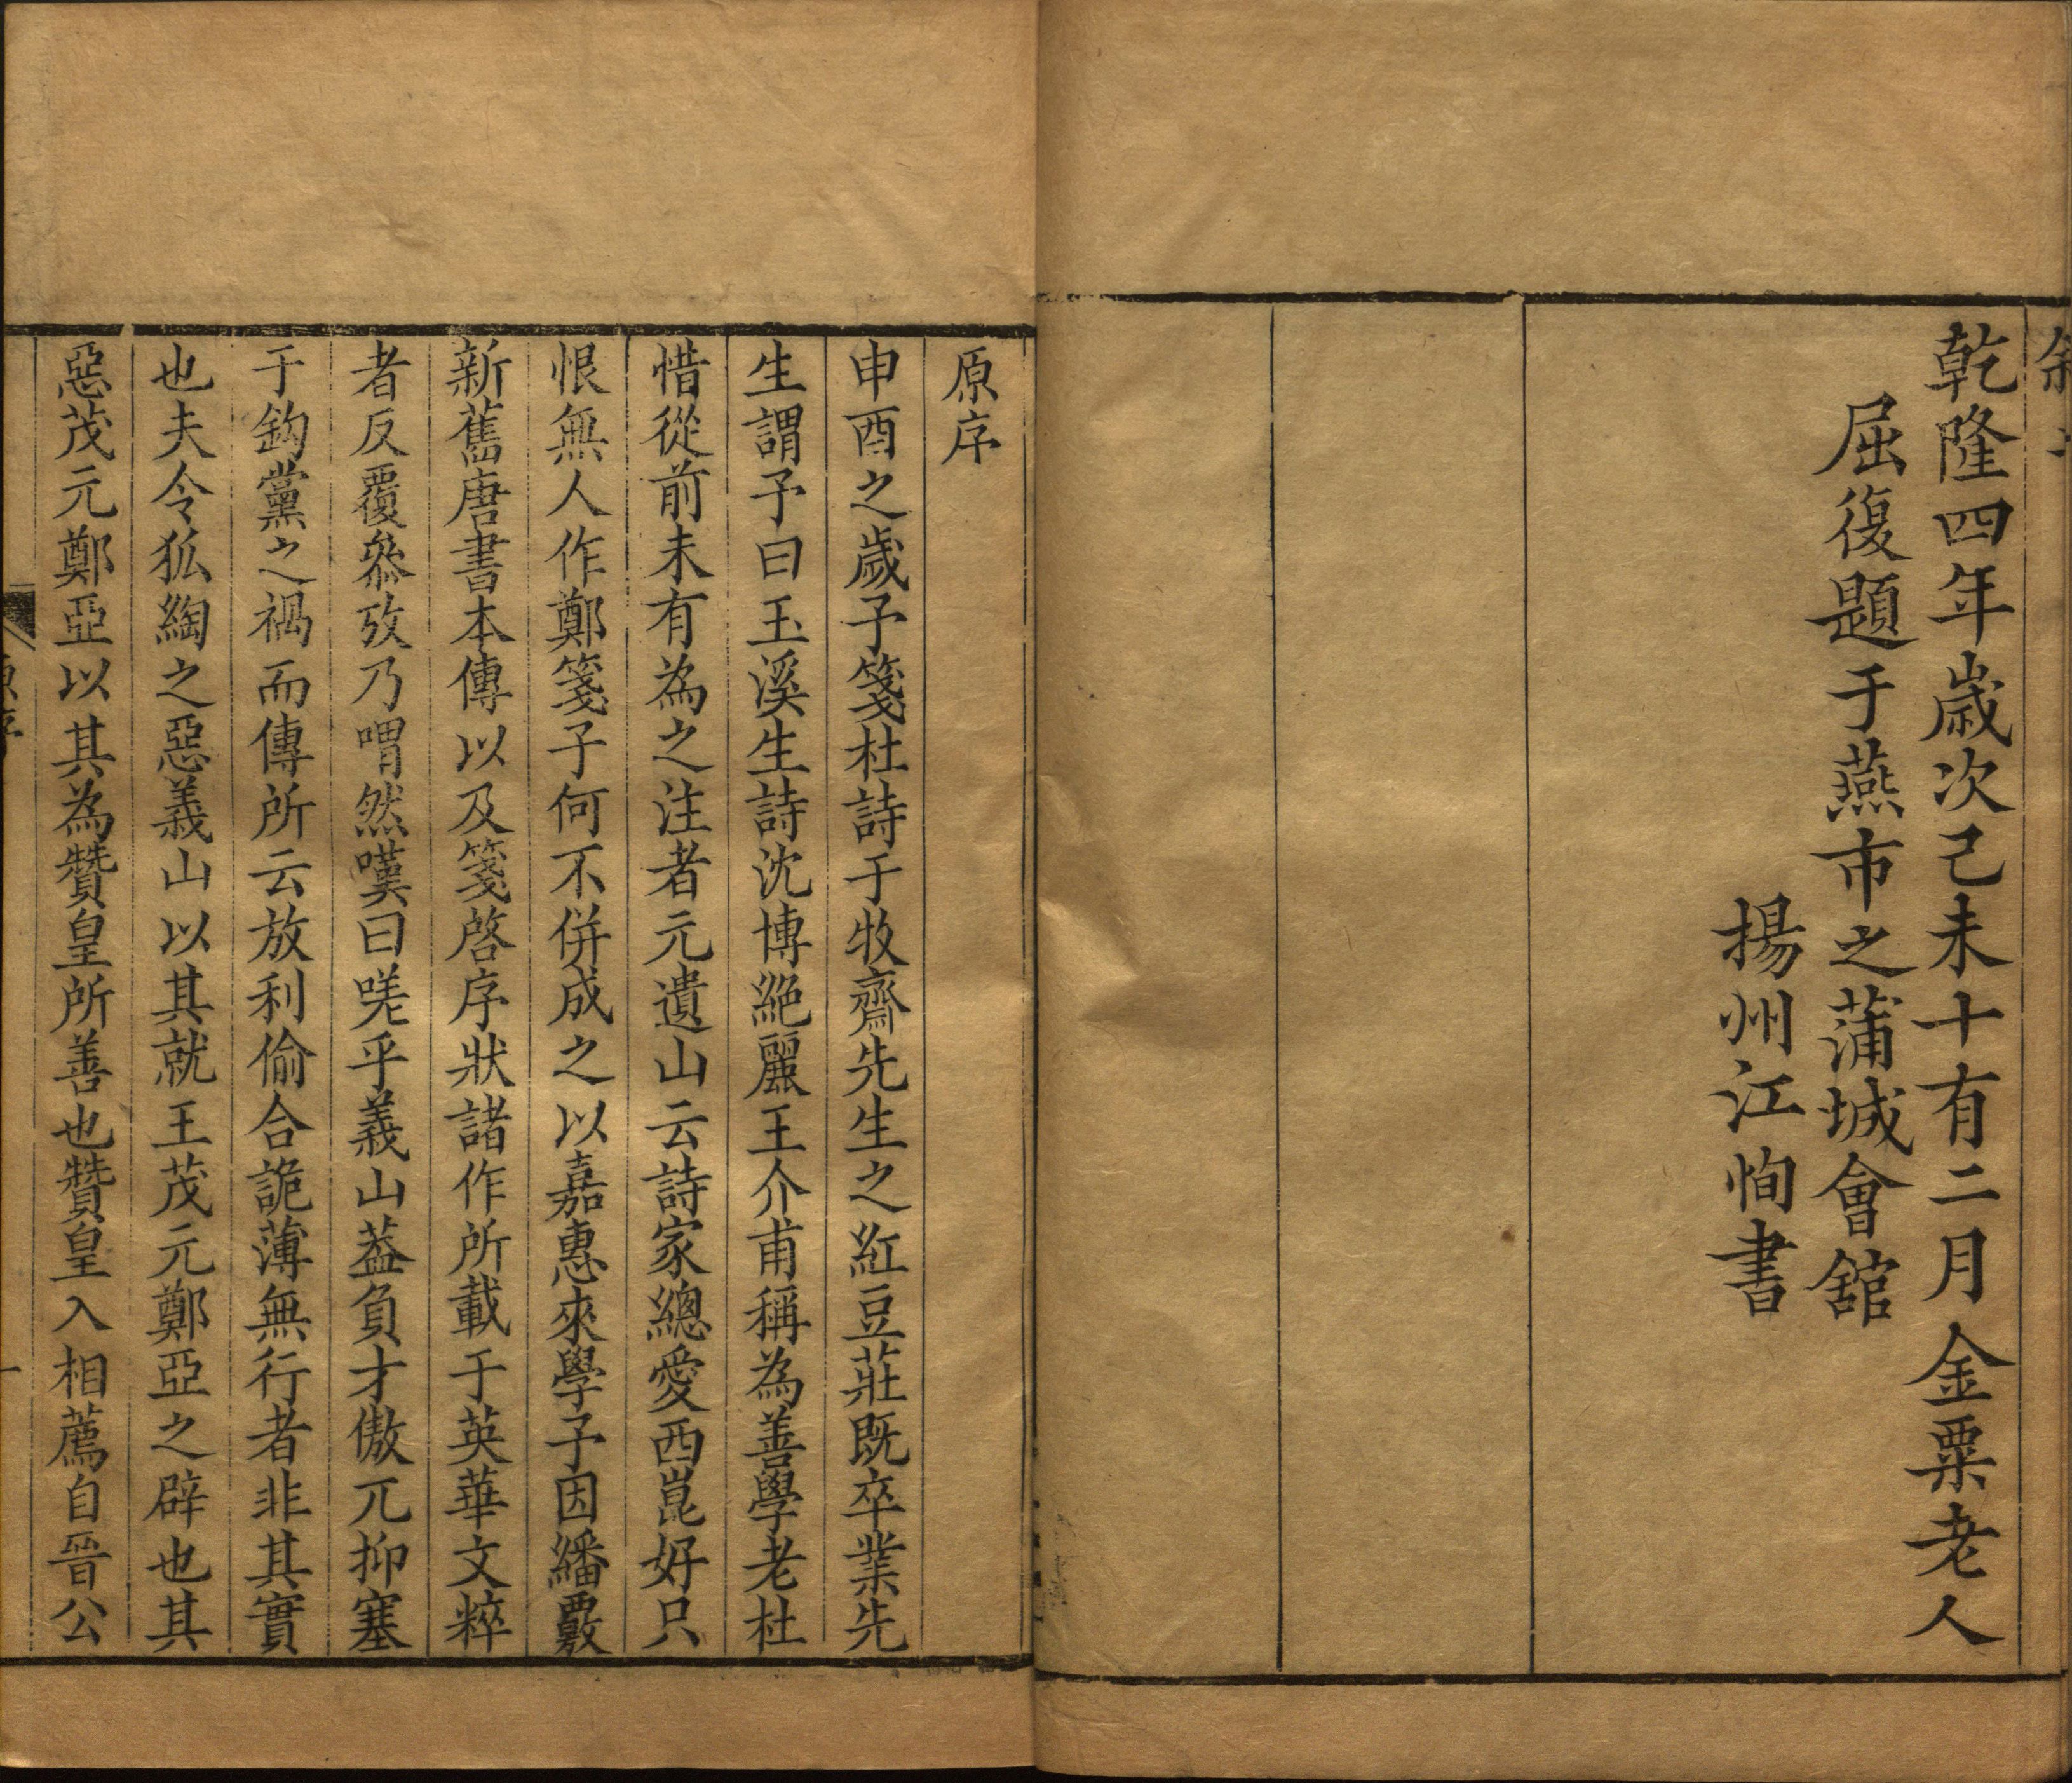 乾隆四年歲次己未十有二月金粟老人
屈復題于燕市之蒲城會舘
揚州江恂書
原序
申酉之歲予箋杜詩于牧齋先生之紅豆莊既卒業先
生謂予曰玉溪生詩沈博絕麗王介甫稱為善學老杜
惜從前未有為之注者元遺山云詩家總愛西崑好只
恨無人作鄭箋子何不併成之以嘉惠來學予因繙覈
新舊唐書本傳以及箋啓序狀諸作所載于英華文粹
者反覆叅攷乃喟然嘆曰嗟乎義山葢負才傲兀抑塞
于鈎黨之禍而傳所云放利偷合詭薄無行者非其實
也夫令狐綯之惡義山以其就王茂元鄭亞之辟也其
惡茂元鄭亞以其為贊皇所善也贊皇入相薦自晉公
原序
一